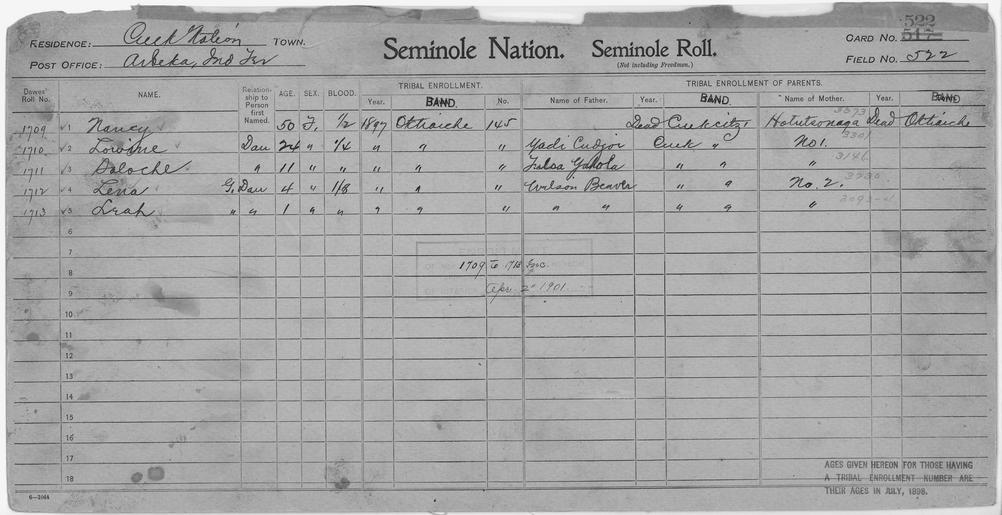 RESIDENCE: Creek Nation TOWN.
POST OFFICE: Arbeka, Ind Ter
Seminole Nation. Seminole Roll.
(Not including Freedmen.)
522
CARD NO. 517
FIELD NO. 522
Dawes' Roll No. NAME. Relationship to Person first Named. AGE. SEX. BLOOD. TRIBAL ENROLLMENT. TRIBAL ENROLLMENT OF PARENTS.
Year. BAND. No. Name of Father. Year. BAND. Name of Mother. Year. BAND
1709 1 Nancy 50 F. 1/2 1897 Oktiaiche 145 Dead Creek citz Hotutsonaga Dead Oktiaiche
1710 2 Lowine Dau 24 " 1/4 " " " Yadi Cudjoe Creek " No 1.
3301
1711 3 Daloche " 11 " " " " " Tulsa Yahola " " "
3146
1712 4 Lena G. Dau 4 " 1/8 " " " Wilson Beaver " " No. 2.
1713 5 Leah " " 1 " " " " " " " " " "
6
7
8 1709 to 1713 Inc.
9 Apr. 2" 1901.
10
11
12
13
14
15
16
17
18
AGES GIVEN HEREON FOR THOSE HAVING
A TRIBAL ENROLLMENT NUMBER ARE
THEIR AGES IN JULY, 1898.
6—2064